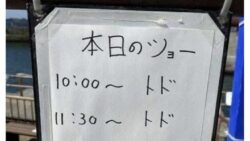 本日のショー
10:00～ トド
11:30～ トド